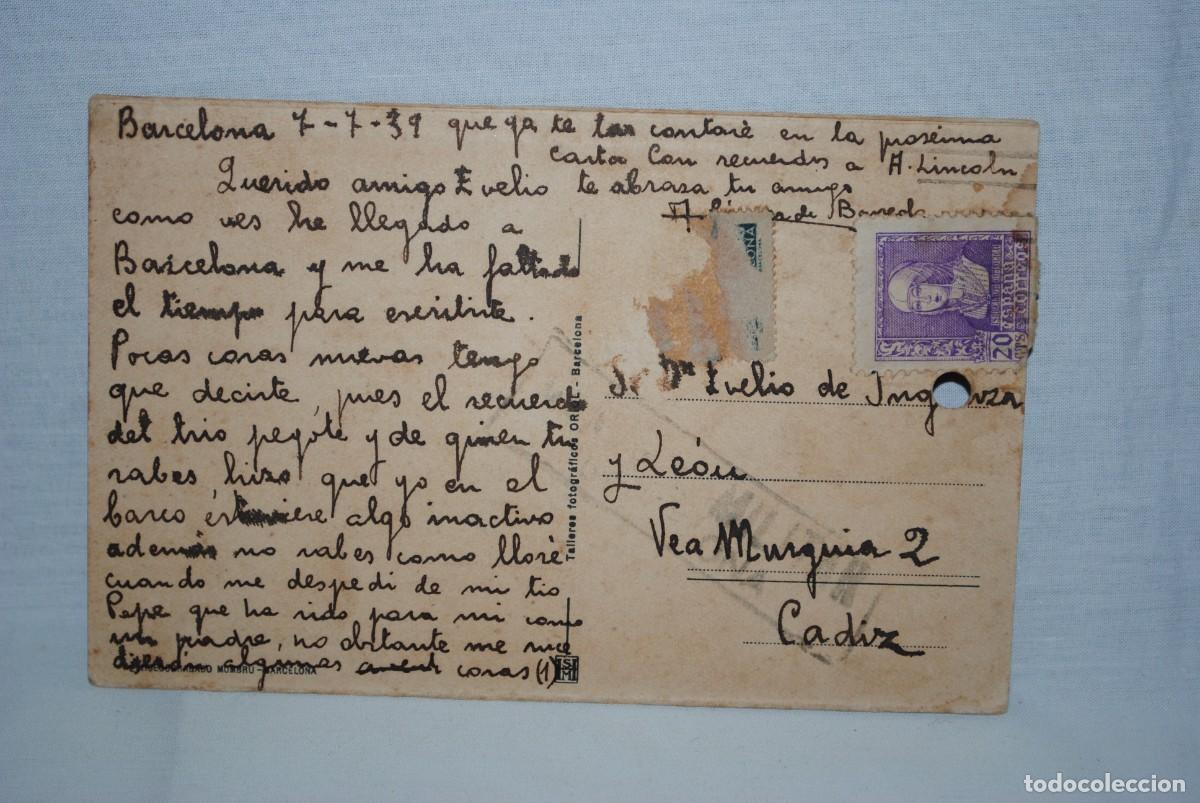 Barcelona 7-7-39
Querido amigo Evelio
como ves he llegado a
Barcelona y me ha faltado
el tiempo para escribirte.
Pocas cosas nuevas tengo
que decirte, pues el recuerdo
del trio pegote y de quien tu
sabes, hizo que yo en el
barco estuviere algo inactivo
además no sabes como lloré
cuando me despedi de mi tio
Pepe que ha sido para mi como
un padre, no obstante me suce
dieron algunas cosas (1)
que ya te las contaré en la prosima
carta Con recuerdos a A. Lincoln
te abraza tu amigo
A. de
MOMBRU - BARCELONA
Talleres fotográficos ORIOL - Barcelona
ONA
BARCELONA
ISABEL
ESPAÑA
CORREOS
20
CTS
S. D. Evelio de Ingunza
y León
Vea Murguia 2
Cadiz
MILITAR
todocoleccion